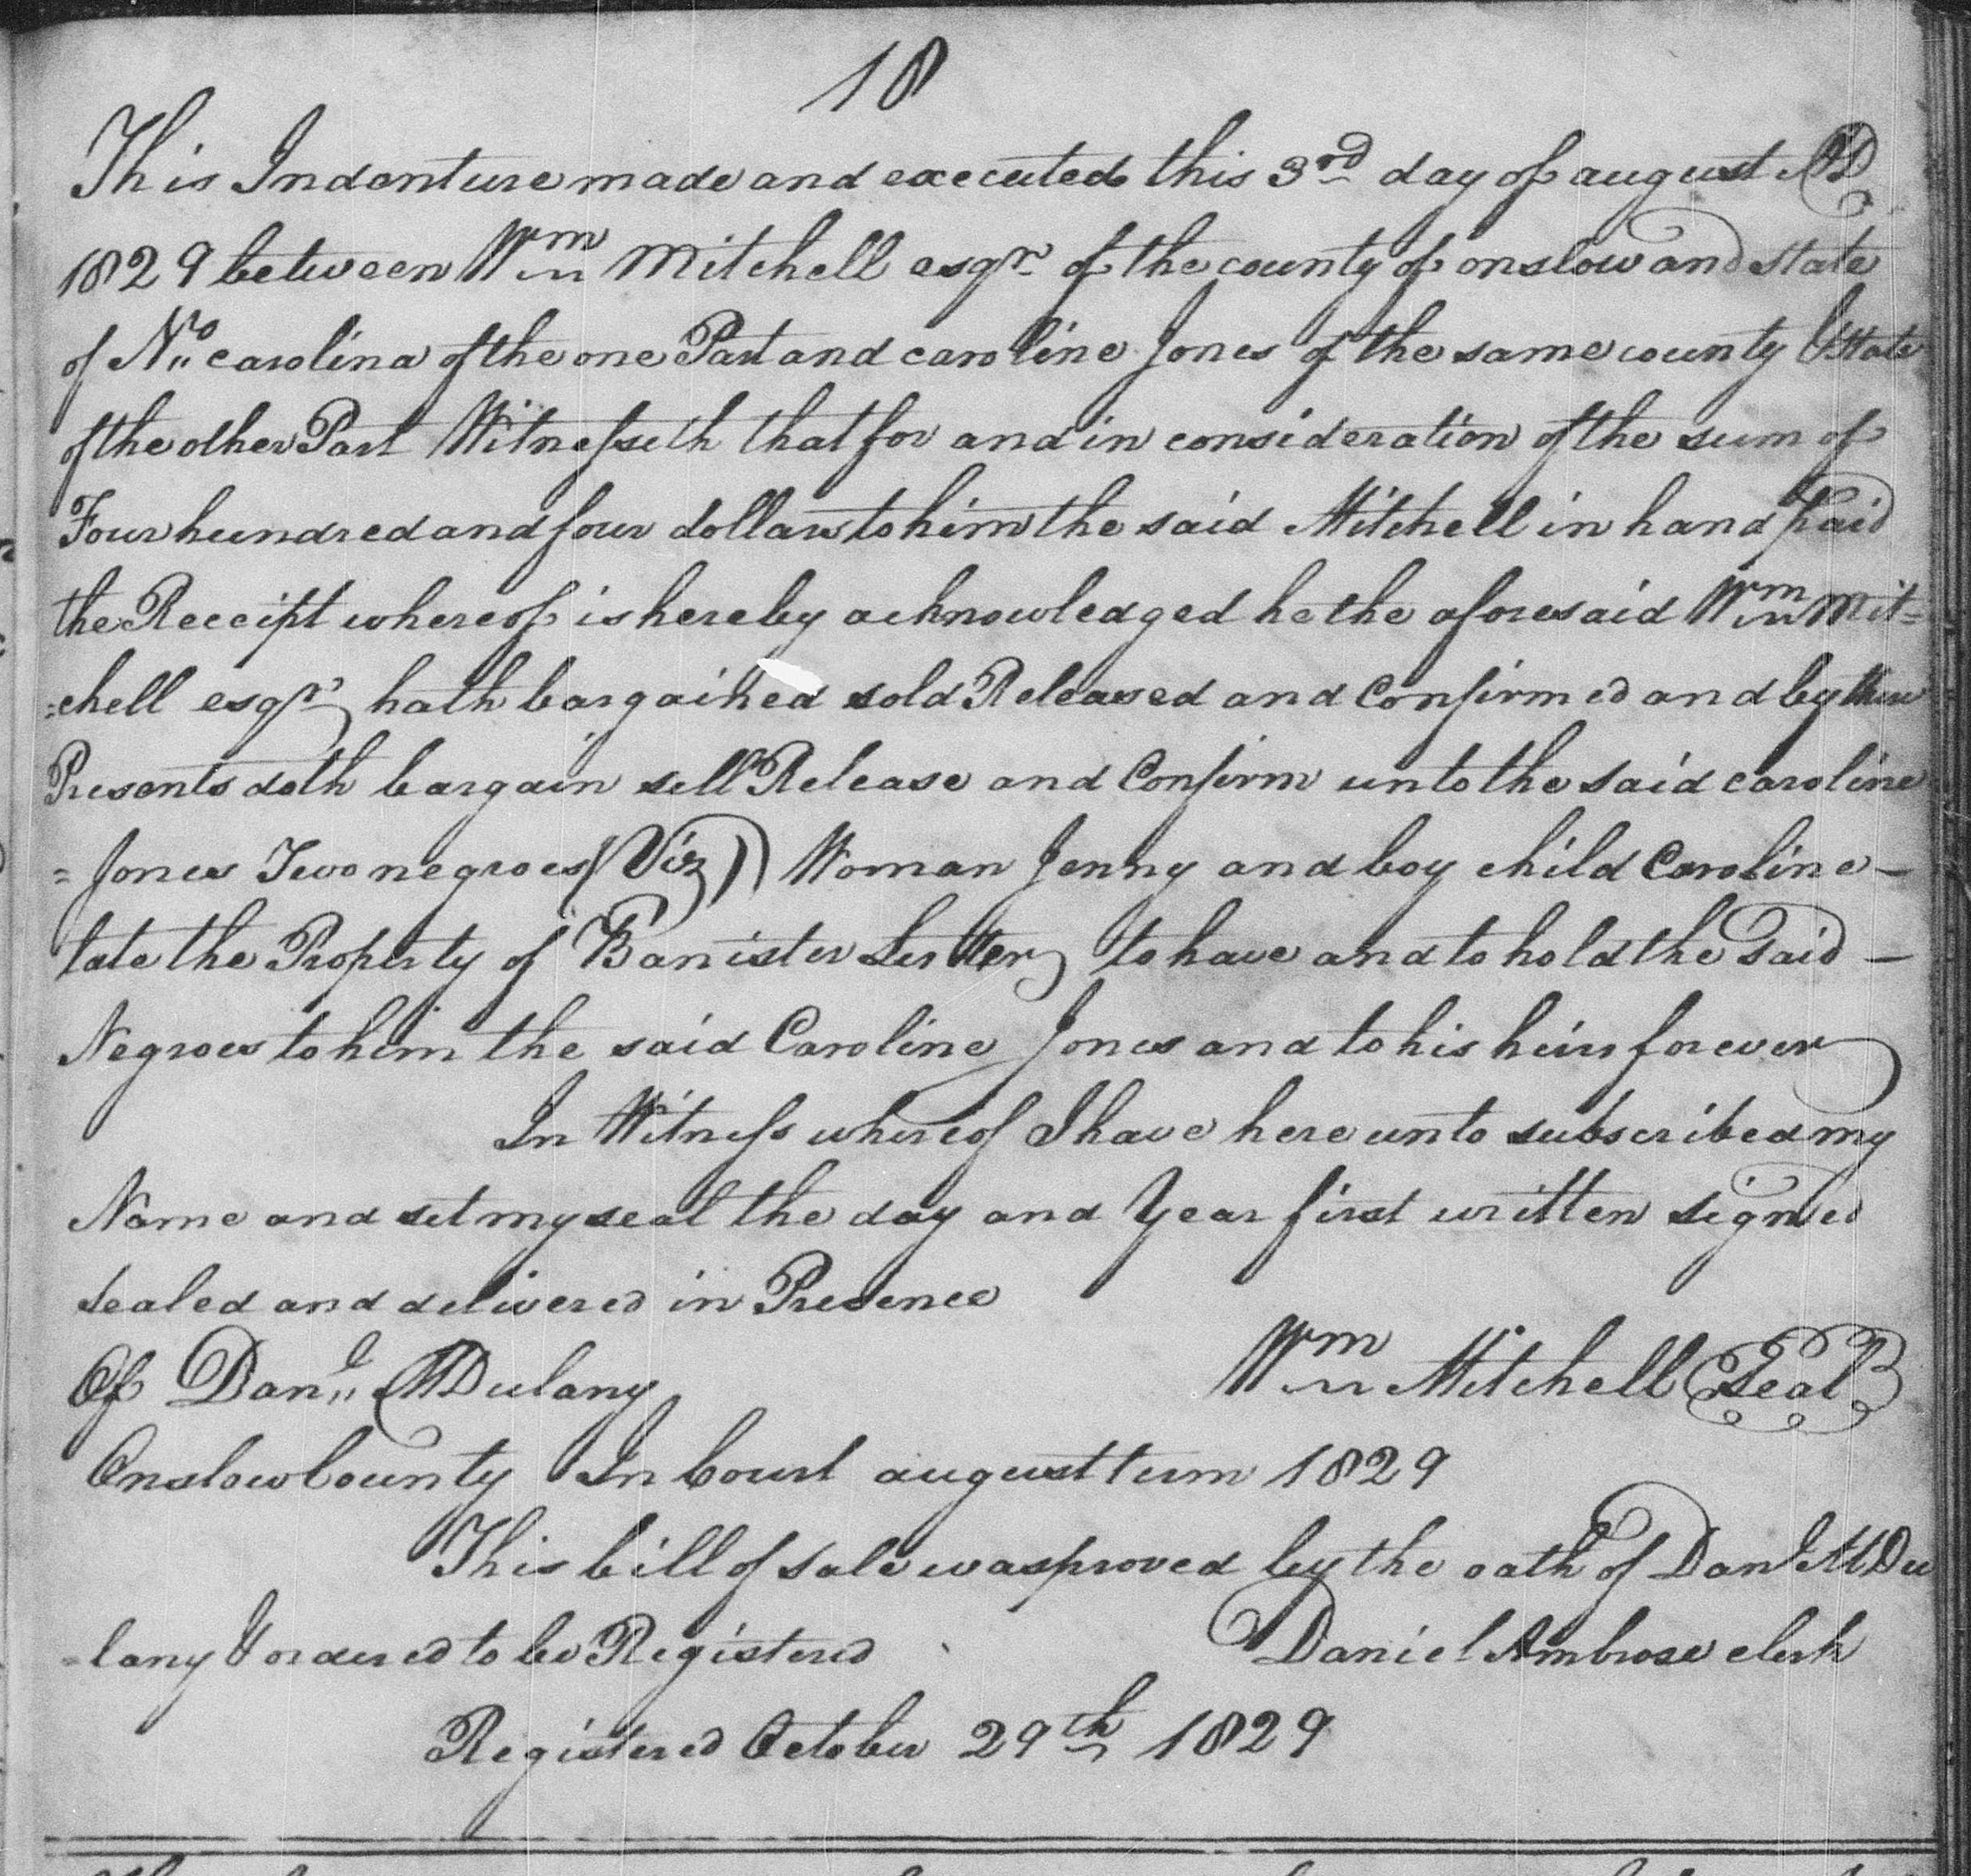 18
This Indenture made and executed this 3rd day of august AD
1829 between Wm Mitchell esqr of the county of onslow and state
of No carolina of the one Part and caroline Jones of the same county & State
of the other Part Witnesseth that for and in consideration of the sum of
Four hundred and four dollars to him the said Mitchell in hand paid
the Receipt whereof is hereby acknowledged he the aforesaid Wm Mit=
=chell esqr hath bargained sold Released and Confirmed and by these
Presents doth bargain sell Release and Confirm unto the said caroline
= Jones Two negroes (Viz) Woman Jenny and boy child Caroline –
late the Property of Banister Lester to have and to hold the said –
Negroes to him the said Caroline Jones and to his heirs forever
In Witness whereof I have here unto subscribed my
Name and set my seal the day and Year first written signed
sealed and delivered in Presence
Of Danl M Dulany Wm Mitchell Seal
Onslow County In Court august term 1829
This bill of sale was proved by the oath of Danl M Du
=lany & ordered to be Registered Daniel Ambrose clerk
Registered October 29th 1829